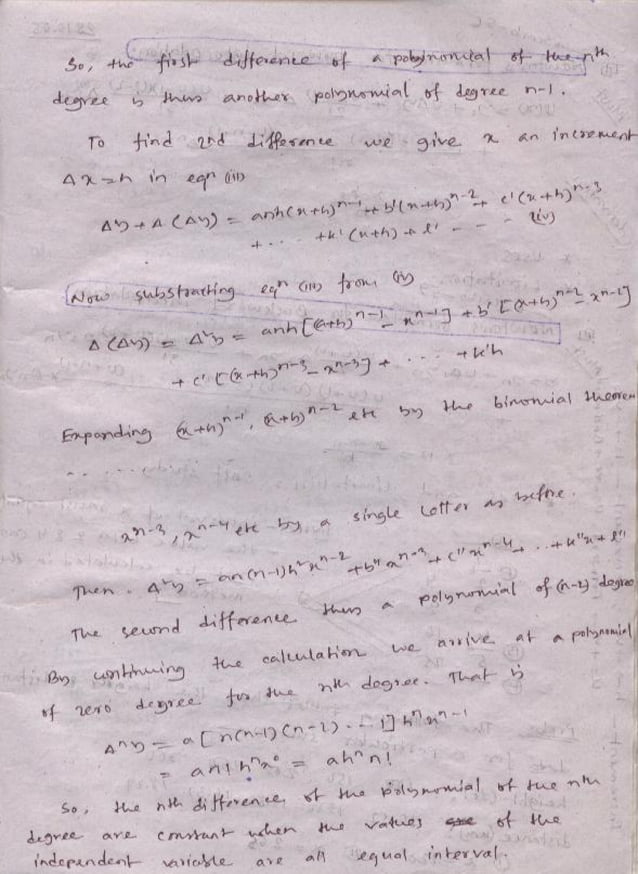 So, the first difference of a polynomial of the nth
degree is thus another polynomial of degree n-1.
To find 2nd difference we give x an increment
Δx = h in eqn (iii)
Δy + Δ(Δy) = anh(x+h)ⁿ⁻¹ + b'(x+h)ⁿ⁻² + c'(x+h)ⁿ⁻³
+ ... + k'(x+h) + l' - - - (iv)
Now substracting eqn (iii) from (iv)
Δ(Δy) = Δ²y = anh[(x+h)ⁿ⁻¹ - xⁿ⁻¹] + b'[(x+h)ⁿ⁻² - xⁿ⁻²]
+ c'[(x+h)ⁿ⁻³ - xⁿ⁻³] + ... + k'h
Expanding (x+h)ⁿ⁻¹, (x+h)ⁿ⁻² etc by the binomial theorem
. . . . . . . ,
xⁿ⁻³, xⁿ⁻⁴ etc by a single letter as before.
Then. Δ²y = an(n-1)h²xⁿ⁻² + b''xⁿ⁻³ + c''xⁿ⁻⁴ + .. + k''x + l''
The second difference thus a polynomial of (n-2) degree
By continuing the calculation we arrive at a polynomial
of zero degree for the nth degree. That is
Δⁿy = a[n(n-1)(n-2)...1]hⁿxⁿ⁻¹
= an!hⁿx⁰ = ahⁿn!
So, the nth difference of the polynomial of the nth
degree are constant when the values of the
independent variable are at equal interval.